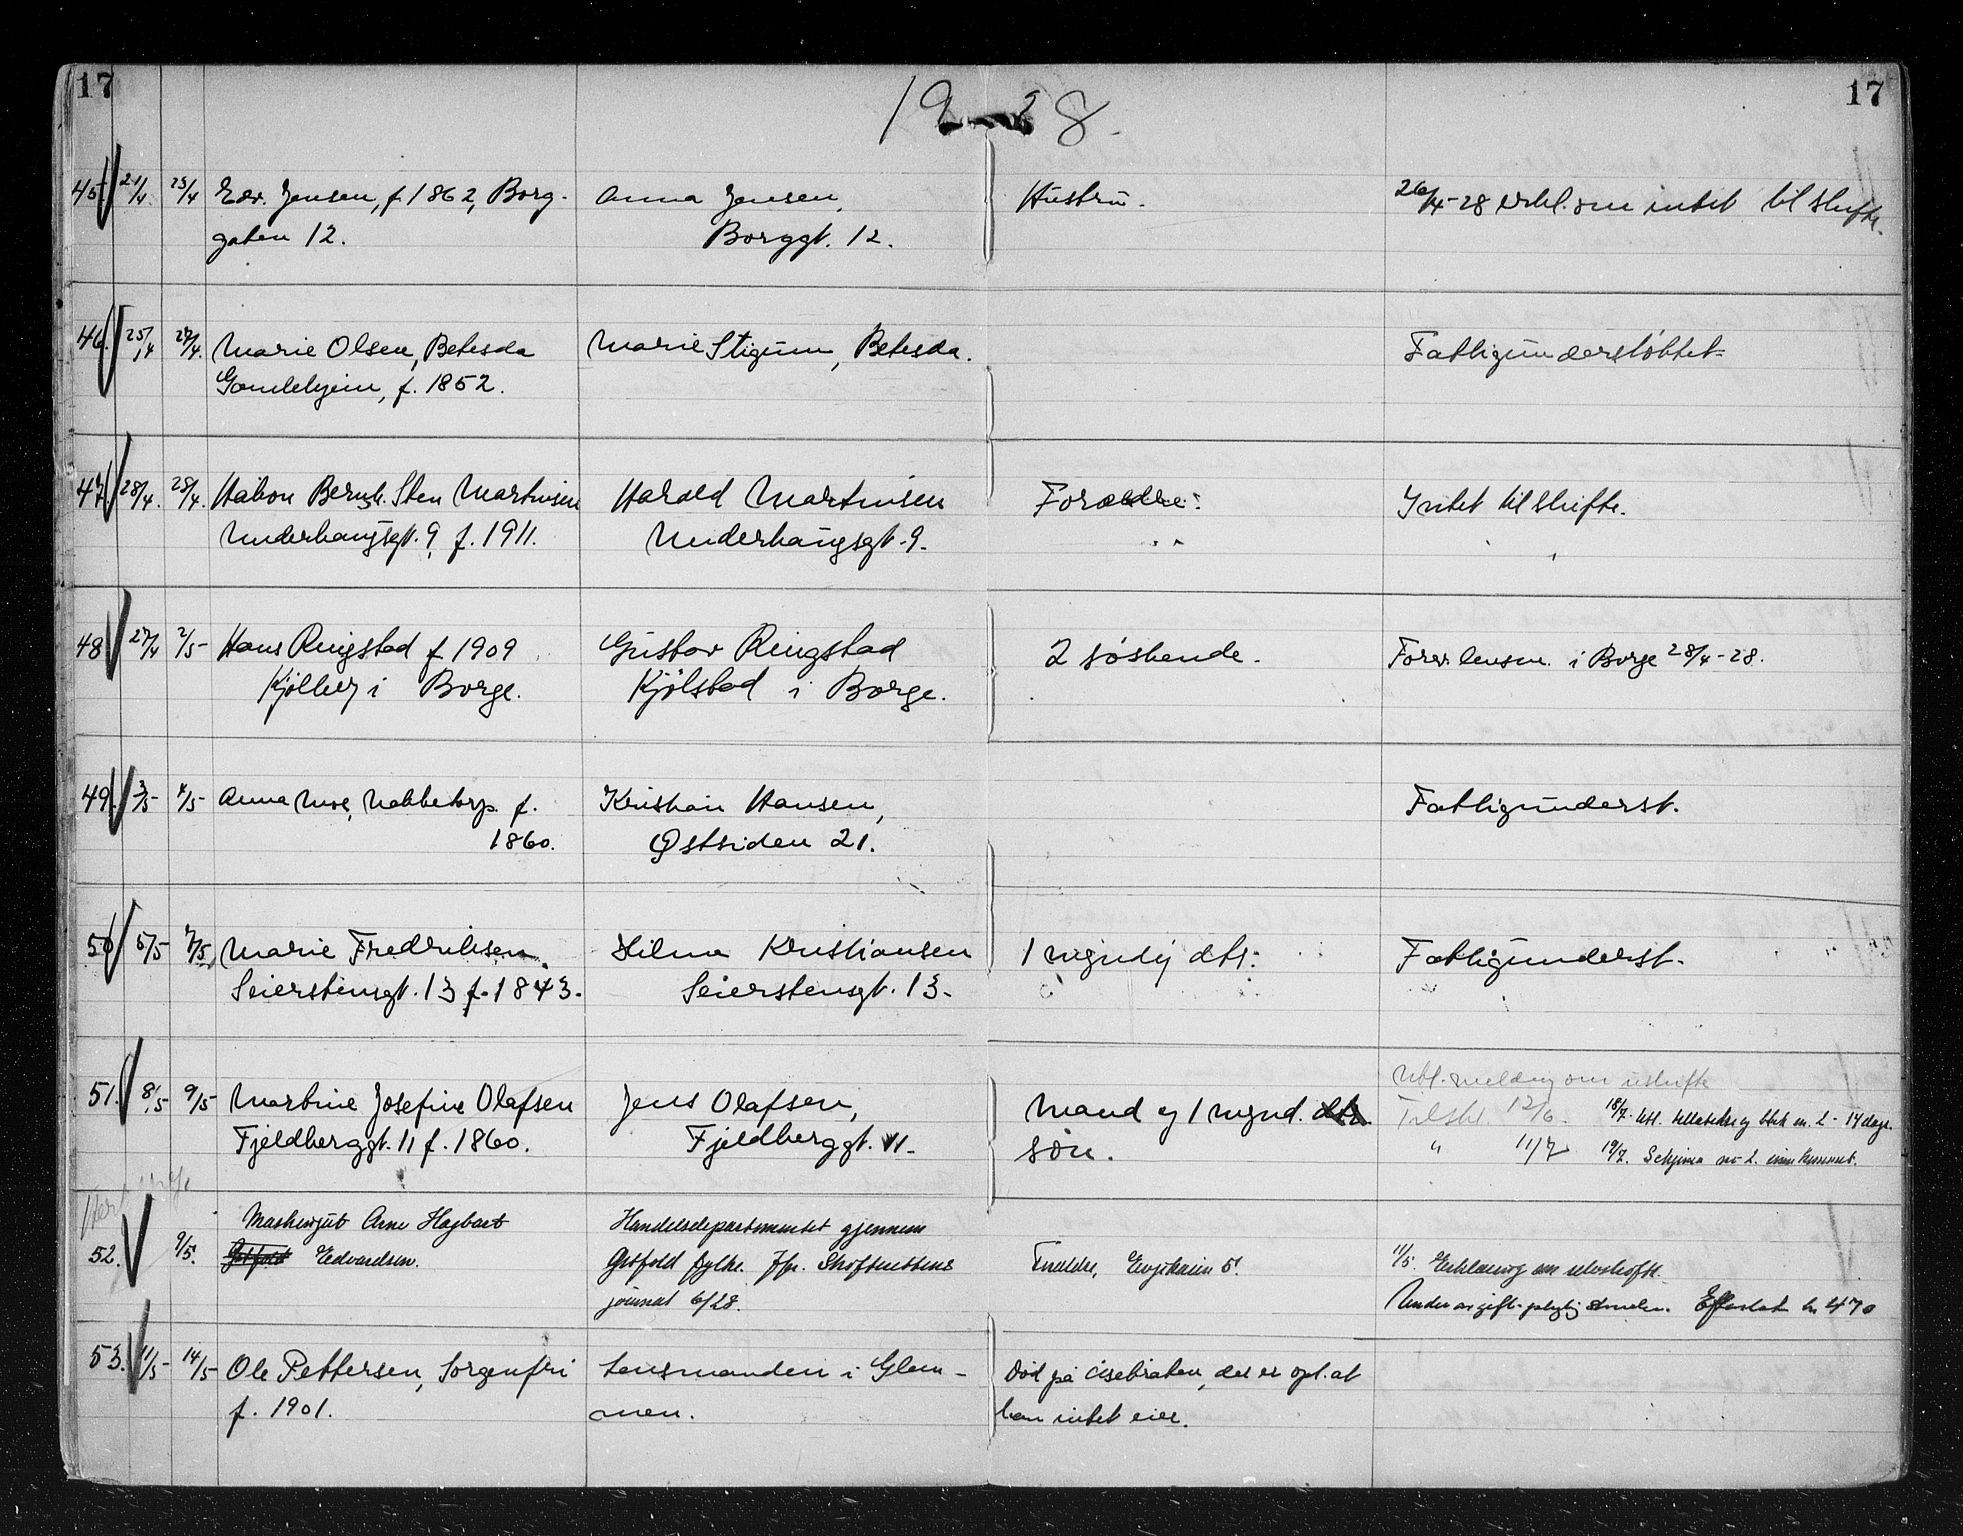 17
17
1928.
45 21/4 25/4 Edv. Jensen, f. 1862, Borg-
gaten 12.
Anna Jensen,
Borggt. 12.
Hustru.
26/4-28 Erkl. om intet til skifte.
46. 25/4 27/4. Marie Olsen, Betesda
Gamlehjem, f. 1852.
Marie Stigum, Betesda.
Fattigunderstöttet
47. 28/4. 28/4. Håkon Bernh. Sten Martinsen
Underhaugsgt. 9, f. 1911.
Harald Martinsen
Underhaugsgt. 9.
Forældre.
Intet til skifte.
48 27/4 2/5- Hans Ringstad f 1909
Kjölberg i Borge.
Gustav Ringstad
Kjölstad i Borge.
2 söskende.
Forev. lensm. i Borge 28/4-28.
49. 3/5- 4/5- Anna Moe, Nabbetorp. f.
1860.
Kristian Hansen,
Østsiden 21.
Fattigunderst.
50 5/5- 7/5 Marie Fredriksen.
Seierstensgt. 13 f. 1843.
Hilma Kristiansen
Seierstensgt. 13.
1 myndig dtr:
Fattigunderst.
51. 8/5 9/5 Martine Josefine Olafsen
Fjeldberggt. 11 f. 1860.
Jens Olafsen,
Fjeldberggt. 11.
Mand og 1 mynd. dtr.
sön.
Utl. melding om uskifte
Tilskr. 12/6. 18/7. utl. 2 - 14 dage.
" 11/7 19/7. Schema no 2.
52. 9/5. Maskingut Arne Hagbart
Edvardsen.
Handelsdepartementet gjennem
Østfold fylke. Jfr. Skifterettens
journal 6/28.
11/5. Erklæring om selvskifte.
Under avgift-pligtig
53. 11/5- 14/5- Ole Pettersen, Sorgenfri
f. 1901.
Lensmanden i Glem-
men.
Död på Cisebraken, det er opl. at
han intet eier.